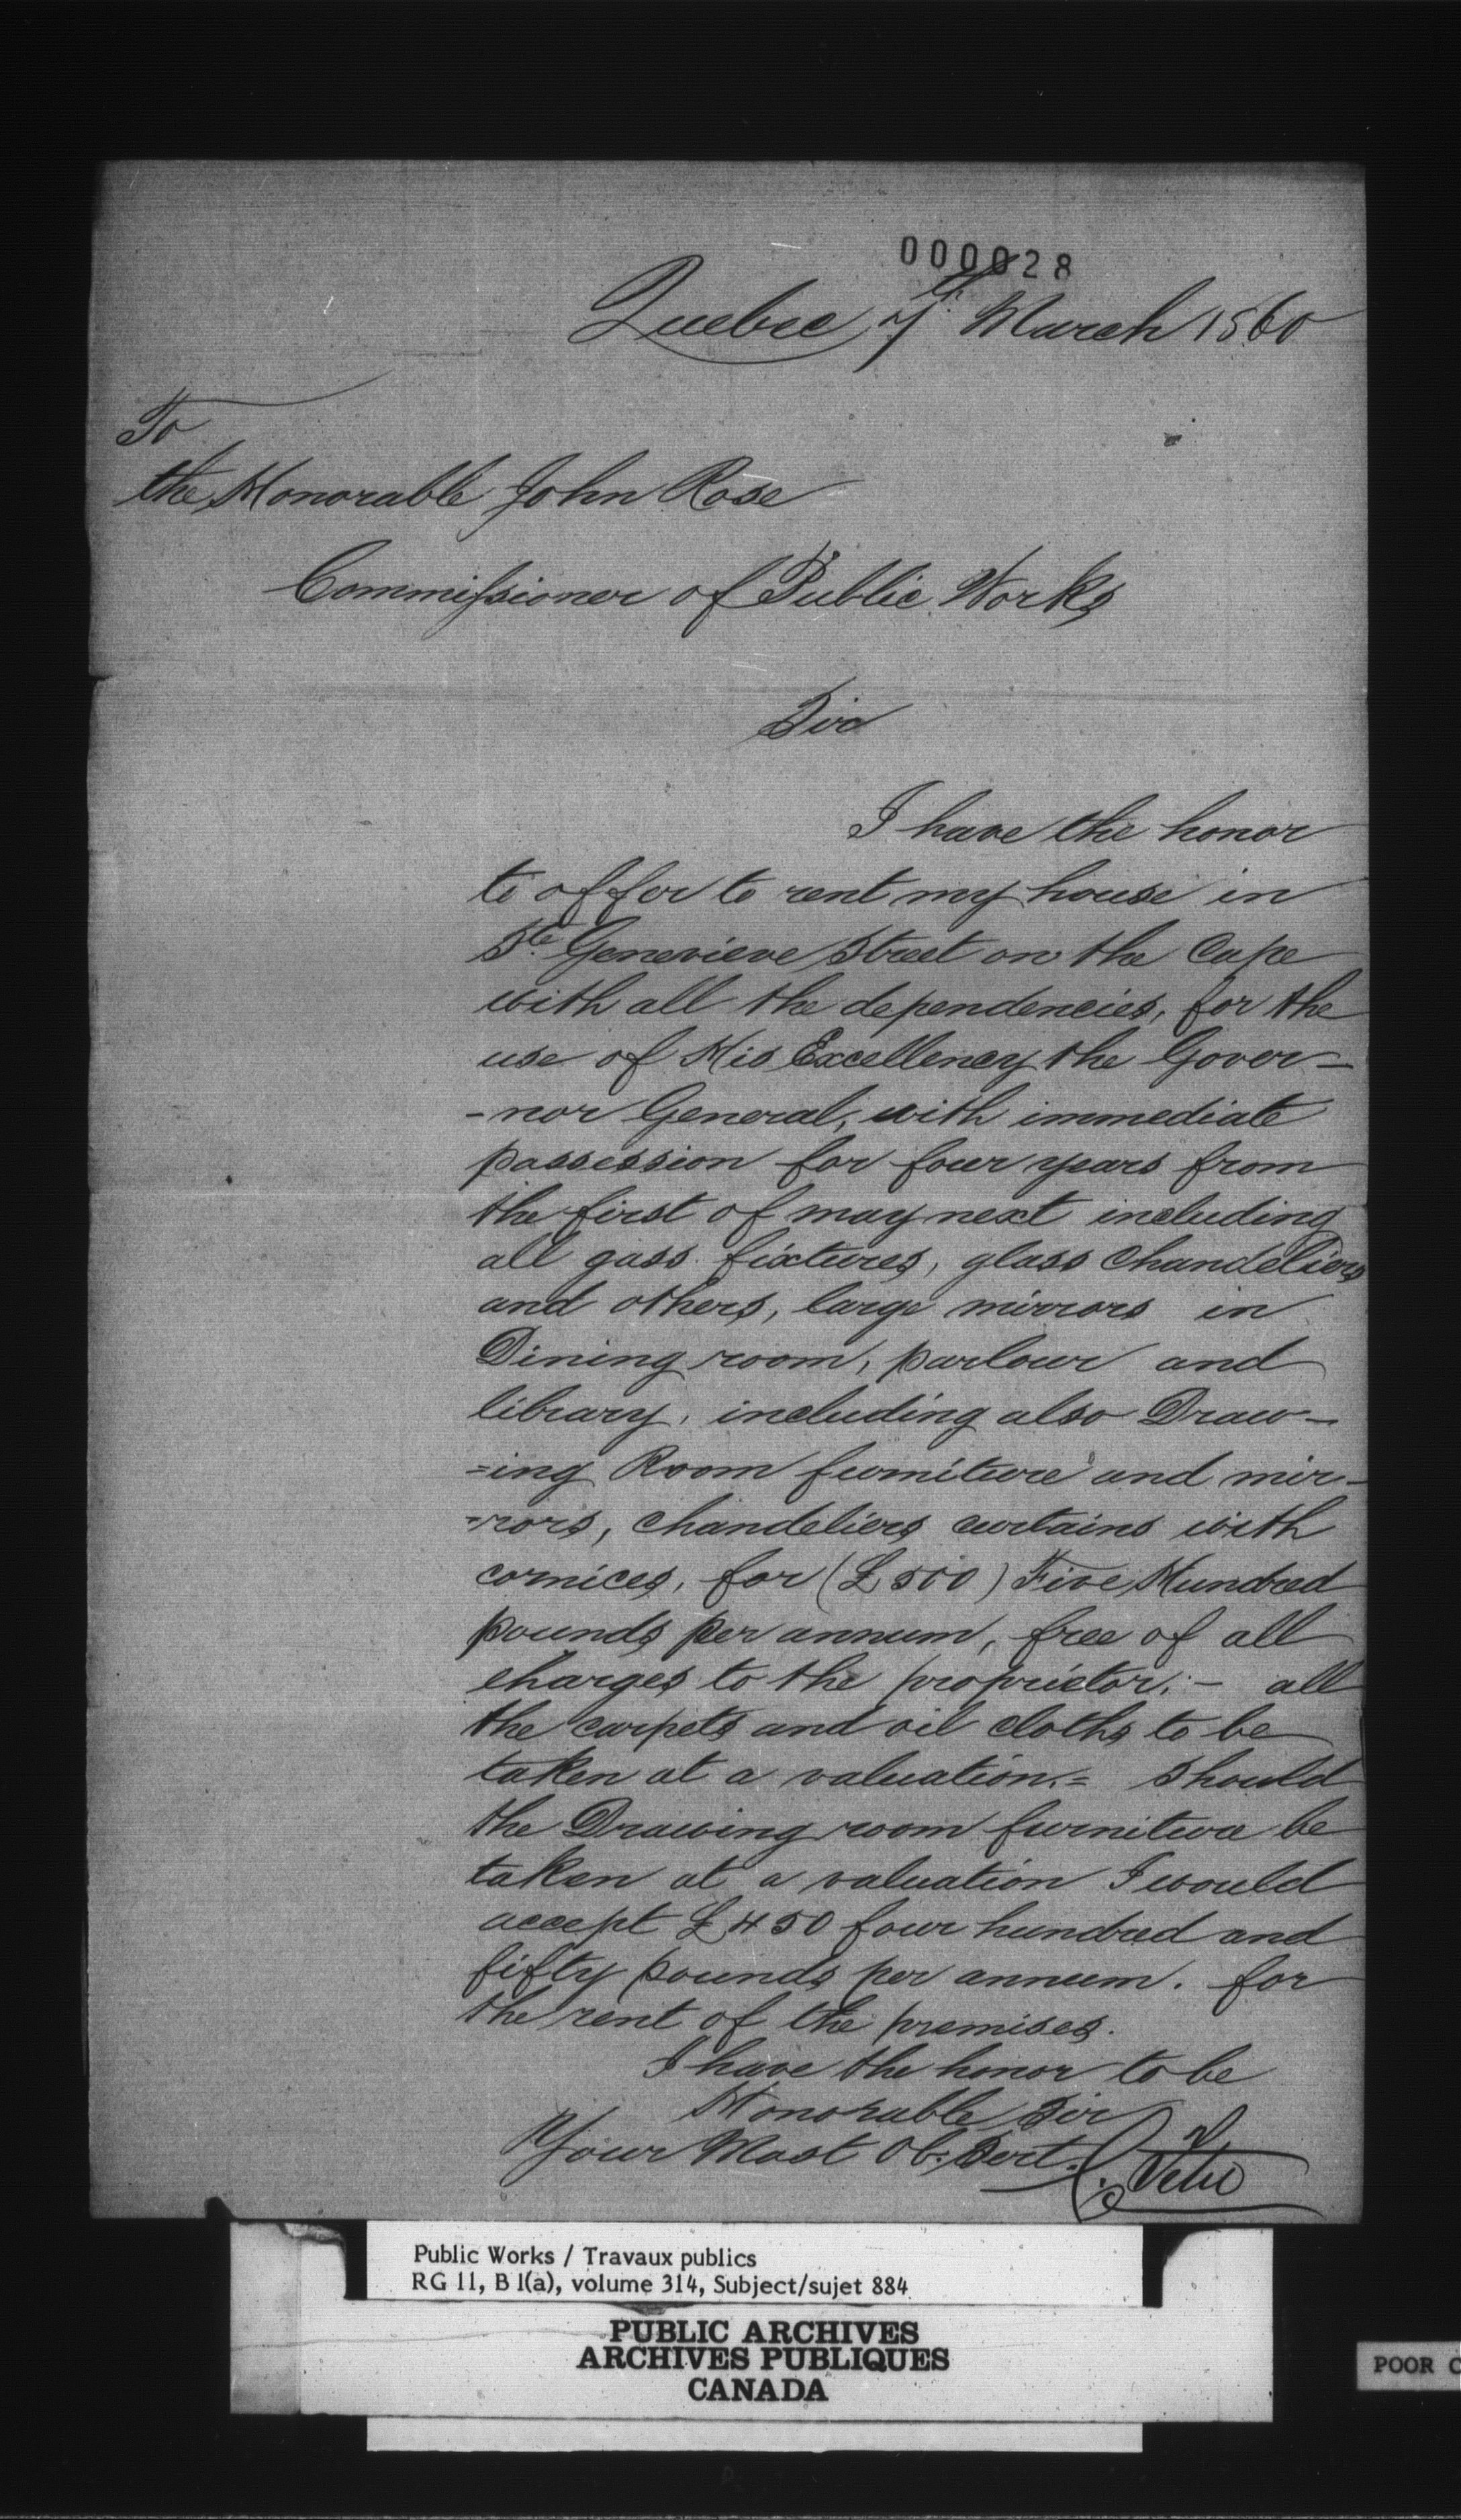 000028
Quebec 7th March 1860
To
the Honorable John Rose
Commissioner of Public Works
Sir
I have the honor
to offer to rent my house in
Ste Genevieve Street on the Cape
with all the dependencies, for the
use of His Excellency the Gover-
-nor General, with immediate
possession for four years from
the first of may next including
all gass fixtures, glass Chandeliers
and others, large mirrors in
Dining room, parlour and
library, including also Draw-
=ing Room furniture and mir-
=rors, chandeliers curtains with
cornices, for (£500) Five Hundred
pounds per annum, free of all
charges to the proprietor;- all
the carpets and oil cloths to be
taken at a valuation.= Should
the Drawing room furniture be
taken at a valuation I would
accept £450 four hundred and
fifty pounds per annum. for
the rent of the premises.
I have the honor to be
Honorable Sir
Your Most Ob. Sert.
Tétu
Public Works / Travaux publics
RG 11, B 1(a), volume 314, Subject/sujet 884
PUBLIC ARCHIVES
ARCHIVES PUBLIQUES
CANADA
POOR C